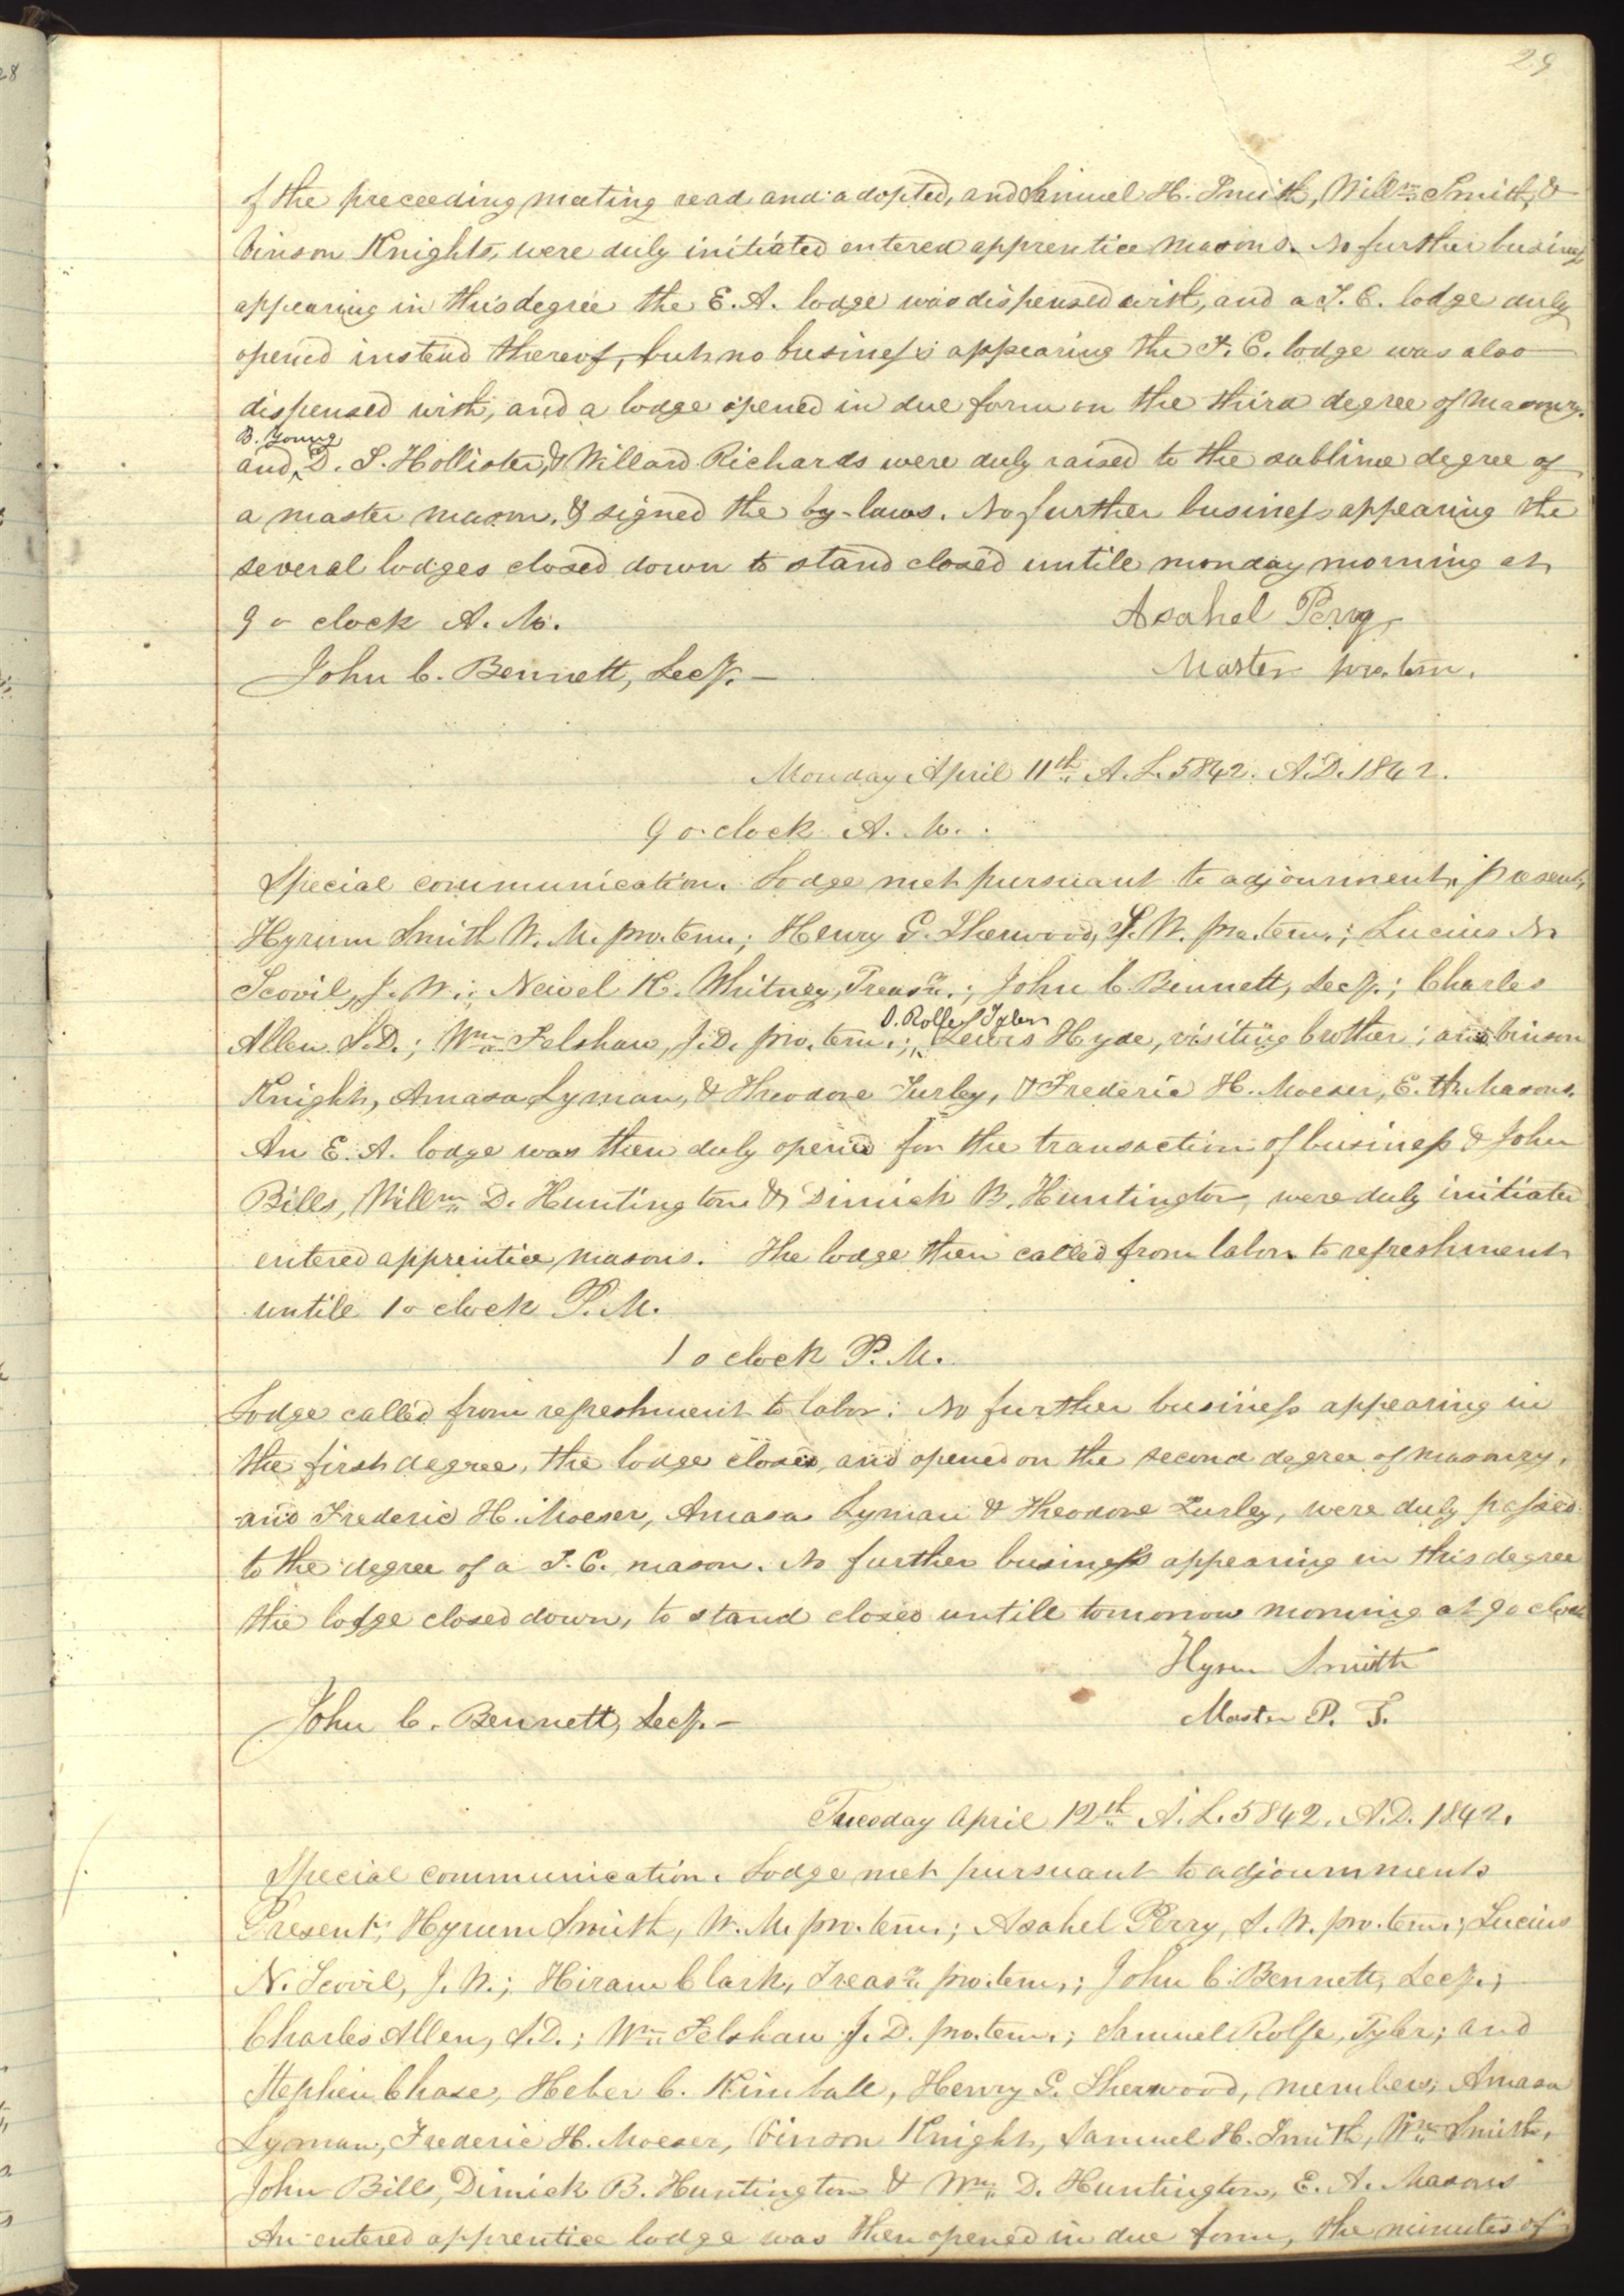 29
28
of the preceeding meeting read and adopted, and Samuel H. Smith, Willm. Smith, &
Vinson Knights, were duly initiated entered apprentice masons. No further business
appearing in this degree the E. A. lodge was dispensed with, and a F. C. lodge duly
opened instead thereof, but no business appearing the F. C. lodge was also
dispensed with, and a lodge opened in due form on the third degree of masonry.
B. Young
and, D. S. Hollister, & Willard Richards were duly raised to the sublime degree of
a master mason, & signed the by-laws. No further business appearing the
several lodges closed down to stand closed untile monday morning at
9 o clock A. M.
Asahel Perry,
John C. Bennett, Secy. –
Master pro. tem.
Monday April 11th. A. L. 5842. A. D. 1842.
9 o clock A. M.
Special communication. Lodge met pursuant to adjournment, present,
Hyrum Smith W. M. pro. tem.; Henry G. Sherwood, S. W. pro. tem.; Lucius N.
Scovil, J. W.; Newel K. Whitney, Treasr.; John C. Bennett, Secy.; Charles
S. Rolfe, Tyler
Allen S. D.; Wm. Felshaw, J. D. pro. tem.; Lewis Hyde, visiting brother; and Vinson
Knight, Amasa Lyman, & Theodore Turley, & Frederic H. Moeser, E. A. Masons.
An E. A. lodge was then duly opened for the transaction of business & John
Bills, Willm. D. Huntington & Dimick B. Huntington, were duly initiated
entered apprentice masons. The lodge then called from labor to refreshment
untile 1 o clock P. M.
1 o clock P. M.
Lodge called from refreshment to labor. No further business appearing in
the first degree, the lodge closed, and opened on the second degree of masonry,
and Frederic H. Moeser, Amasa Lyman & Theodore Turley, were duly passed
to the degree of a F. C. mason. No further business appearing in this degree
the lodge closed down, to stand closed untill tomorrow morning at 9 o clock
Hyrum Smith
John C. Bennett, Secy. –
Master P. T.
Tuesday April 12th. A. L. 5842. A. D. 1842.
Special communication. Lodge met pursuant to adjournments
Present, Hyrum Smith, W. M. pro. tem.; Asahel Perry, S. W. pro. tem.; Lucius
N. Scovil, J. W.; Hiram Clark, Treasr. pro. tem.; John C. Bennett, Secy.;
Charles Allen, S. D.; Wm. Felshaw J. D. pro. tem.; Samuel Rolfe, Tyler; and
Stephen Chase, Heber C. Kimball, Henry G. Sherwood, members; Amasa
Lyman, Frederic H. Moeser, Vinson Knight, Samuel H. Smith, Wm. Smith,
John Bills, Dimick B. Huntington & Wm. D. Huntington, E. A. Masons
An entered apprentice lodge was then opened in due form, the minutes of